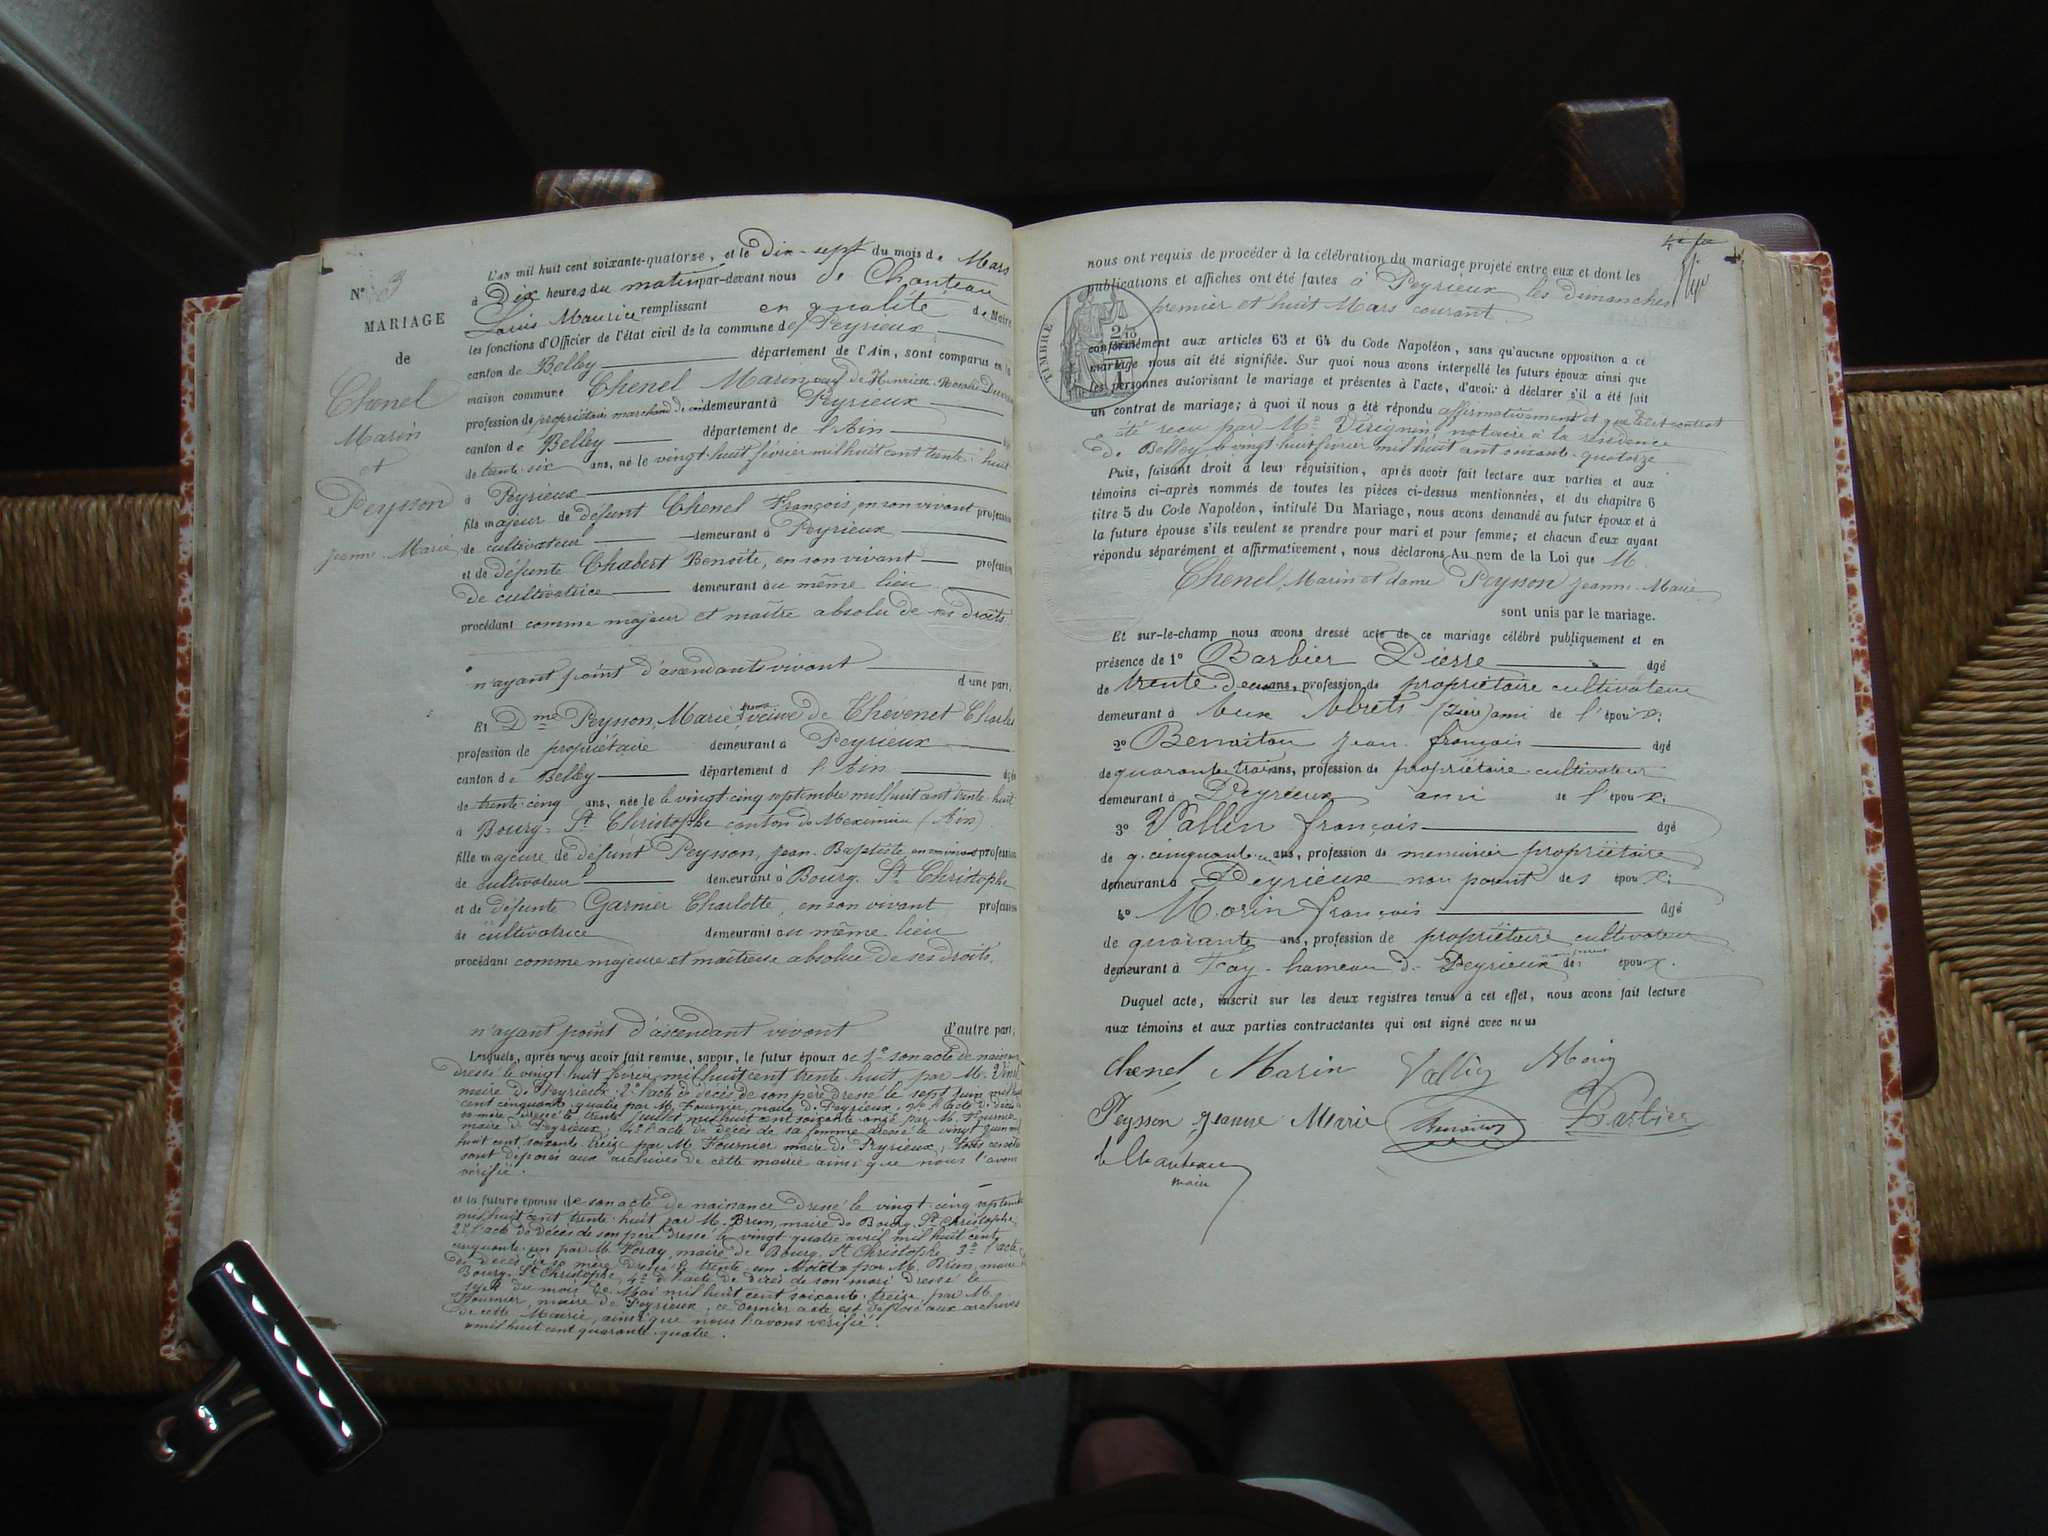 N° 3
MARIAGE
de
Chenel
Marin
et
Peysson
Jeanne-Marie
L'an mil huit cent soixante-quatorze, et le Dix-sept du mois de Mars
à Dix heures du matin par-devant nous de Chanteau
Louis Maurice remplissant en qualité de Maire
les fonctions d'Officier de l'état civil de la commune de Peyrieux
canton de Belley département de l'Ain, sont comparus en la
maison commune Chenel Marin, veuf de Henriette Rosalie
profession de propriétaire marchand de vin demeurant à Peyrieux
canton de Belley département de l'Ain
de trente-six ans, né le vingt-huit février mil huit cent trente-huit
à Peyrieux
fils majeur de défunt Chenel François, en son vivant profession
de cultivateur demeurant à Peyrieux
et de défunte Chabert Benoîte, en son vivant profession
de cultivatrice demeurant au même lieu
procédant comme majeur et maître absolu de ses droits.
n'ayant point d'ascendants vivant
d'une part;
Et Dme Peysson, Marie Jeanne veuve de Thevenet Charles
profession de propriétaire demeurant à Peyrieux
canton de Belley département d l'Ain âgée
de trente-cinq ans, née le le vingt-cinq septembre mil huit cent trente-huit
à Bourg-St Christophe canton de Meximieu (Ain)
fille majeure de défunt Peysson, Jean-Baptiste en son vivant profession
de cultivateur demeurant à Bourg-St Christophe
et de défunte Garnier Charlotte, en son vivant profession
de cultivatrice demeurant au même lieu
procédant comme majeure et maîtresse absolue de ses droits.
n'ayant point d'ascendant vivant d'autre part;
Lesquels, après nous avoir fait remise, savoir, le futur époux de 1° son acte de naissance
dressé le vingt-huit février mil huit cent trente-huit par M.
maire de Peyrieux; 2° l'acte de décès de son père dressé le sept juin mil huit
cent cinquante quatre par M. Fournier, maire de Peyrieux; 3° l'acte de décès
sa mère dressé le trente juillet mil huit cent soixante onze par M. Fournier
maire de Peyrieux; 4° l'acte de décès de sa femme dressé le vingt juin mil
huit cent soixante treize par M. Fournier maire de Peyrieux; tous ces actes
sont déposés aux archives de cette mairie ainsi que nous l'avons
vérifié.
et la future épouse de son acte de naissance dressé le vingt-cinq septembre
mil huit cent trente-huit par M. Brun, maire de Bourg-St Christophe,
2° l'acte de décès de son père dressé le vingt-quatre avril mil huit cent
cinquante-un par M. Feray, maire de Bourg-St Christophe, 3° l'acte
de décès de sa mère dressé le trente-un Août par M. Brun, maire
Bourg-St Christophe, 4° l'acte de décès de son mari dressé le
du mois de Mai mil huit cent soixante-treize, par M.
Fournier, maire de Peyrieux; ce dernier acte est déposé aux archives
de cette Mairie, ainsi que nous l'avons vérifié.
mil huit cent quarante-quatre.
nous ont requis de procéder à la célébration du mariage projeté entre eux et dont les
publications et affiches ont été faites à Peyrieux les dimanches
premier et huit Mars courant.
TIMBRE
conformément aux articles 63 et 64 du Code Napoléon, sans qu'aucune opposition a ce
mariage nous ait été signifiée. Sur quoi nous avons interpellé les futurs époux ainsi que
les personnes autorisant le mariage et présentes à l'acte, d'avoir à déclarer s'il a été fait
un contrat de mariage; à quoi il nous a été répondu affirmativement et que ledit contrat
été reçu par Me notaire à la résidence
de Belley le vingt-huit février mil huit cent soixante-quatorze
Puis, faisant droit à leur réquisition, après avoir fait lecture aux parties et aux
témoins ci-après nommés de toutes les pièces ci-dessus mentionnées, et du chapitre 6
titre 5 du Code Napoléon, intitulé Du Mariage, nous avons demandé au futur époux et à
la future épouse s'ils veulent se prendre pour mari et pour femme; et chacun d'eux ayant
répondu séparément et affirmativement, nous déclarons Au nom de la Loi que M.
Chenel, Marin et dame Peysson Jeanne-Marie
sont unis par le mariage.
Et sur-le-champ nous avons dressé acte de ce mariage célébré publiquement et en
présence de 1° Barbier Pierre âgé
de trente deux ans, profession de propriétaire cultivateur
demeurant à Aux Abrets (Isère) ami de l'époux;
2° Benoiton Jean-François âgé
de quarante-trois ans, profession de propriétaire cultivateur
demeurant à Peyrieux ami de l'époux;
3° Vallin François âgé
de cinquante ans, profession de menuisier propriétaire
demeurant à Peyrieux non parent des époux;
4° Morin François âgé
de quarante ans, profession de propriétaire cultivateur
demeurant à Fay-hameau de Peyrieux des époux.
Duquel acte, inscrit sur les deux registres tenus à cet effet, nous avons fait lecture
aux témoins et aux parties contractantes qui ont signé avec nous
Chenel Marin Vallin Morin
Peysson Jeanne Marie Benoiton Barbier
de Chanteau
maire